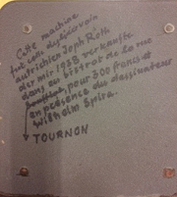 Cette machine
fut celle du
autrichien Joph Roth
der mir 1938 verkaufte
dans un bistrot de la rue
pour 300 francs et
en présence du dessinateur
Wilhelm Spira.
TOURNON